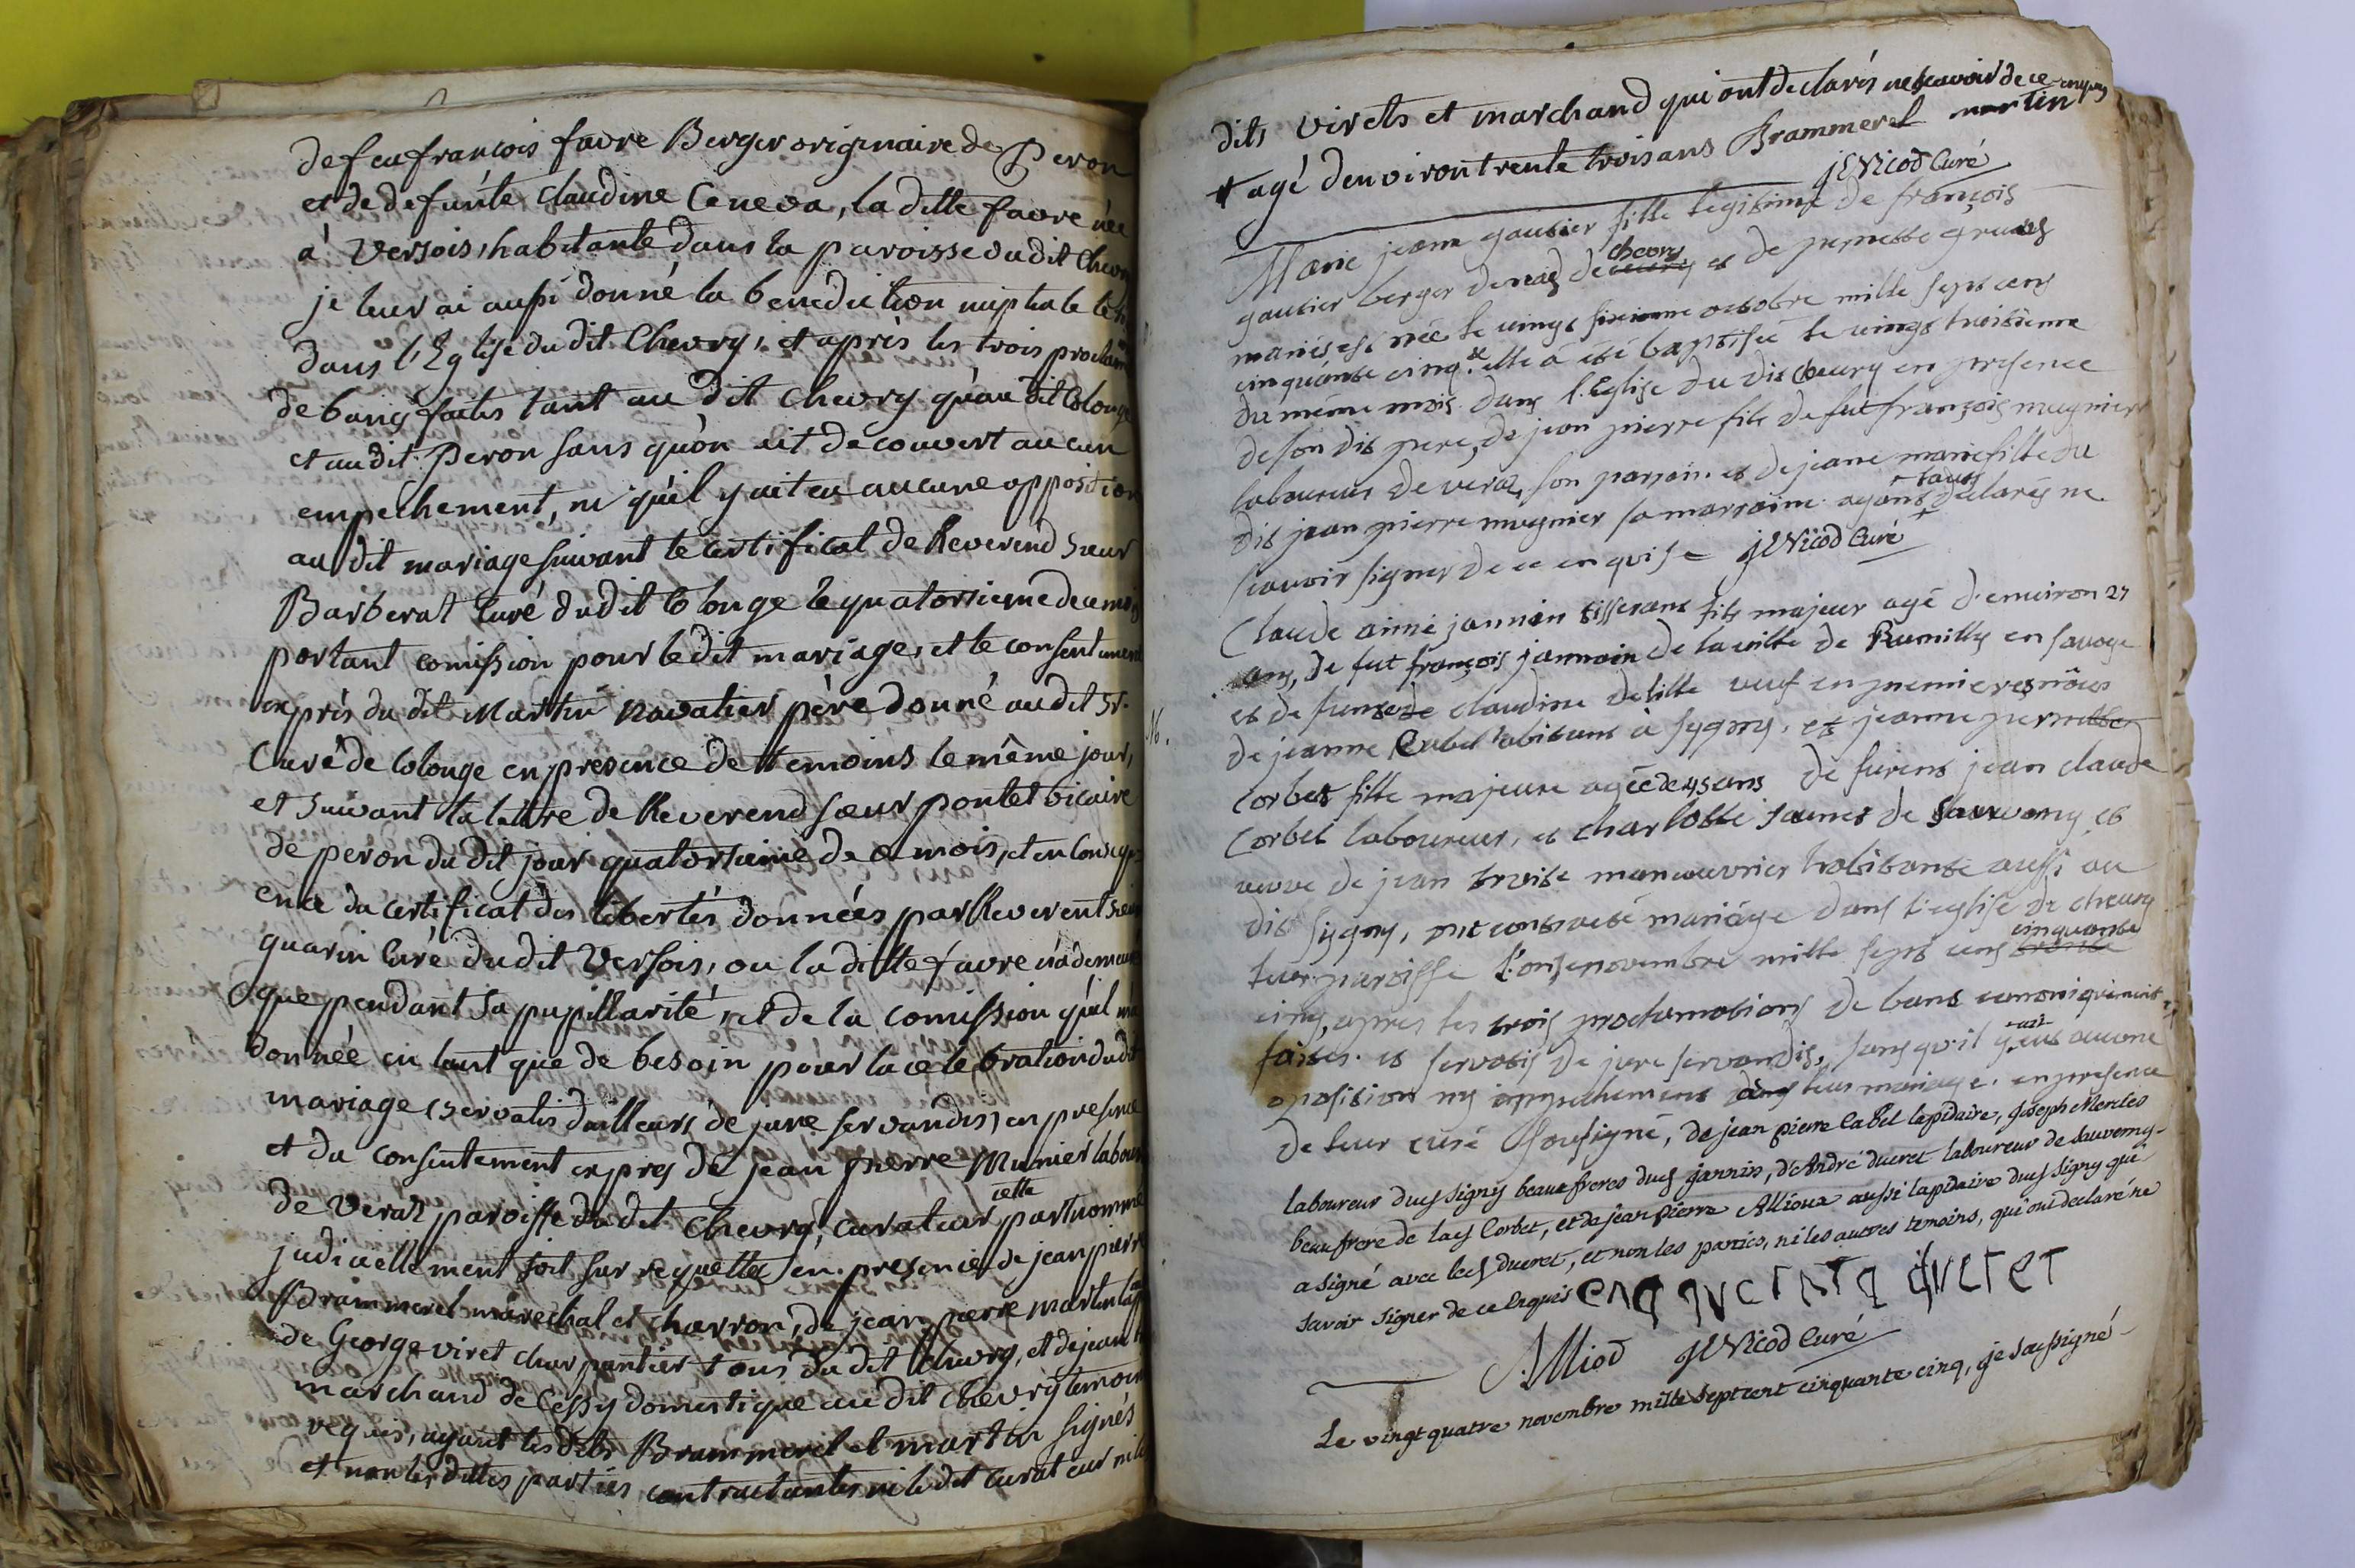 de feu françois favre Berger originaire de Peron
et de defunte Claudine Ceneva, la ditte favre née
à Versois, habitante dans la paroisse du dit Chevry
je leur ai aussi donné la benediction nuptiale le
dans l'Eglise du dit Chevry, et après les trois proclam
de bans faites tant au dit Chevry qu'au dit Colonge
et au dit Peron sans qu'on ait decouvert aucun
empechement, ni qu'il y ait eu aucune opposition
au dit mariage suivant le certificat de Reverend Sieur
Barberat Curé du dit Colonge le quatorsieme de ce mois
portant comission pour le dit mariage, et le consentement
exprès du dit Martin Novatier père donné au dit Sr.
Curé de Colonge en presence de temoins le même jour,
et suivant la lettre de Reverend Sieur pontet vicaire
de peron du dit jour quatorsieme de ce mois, et en conseq
ence du certificat des libertés données par Reverent Sieur
quarin Curé du dit Versois, ou la ditte favre n'a demeuré
que pendant sa pupillarité, et de la comission qu'il m'a
donnée en tant que de besoin pour la celebration du dit
mariage (servatis d'ailleurs de jure servandis) en presence
et du consentement expres de jean pierre Munier labour
de Veraz paroisse du dit Chevry, curateur cette part nommé
judiciellement soit sur requette, en presence de jean pierre
Brammerel marechal et charron, de jean pierre martin
de George viret charpantier tous du dit Chevry, et de jean
marchand de Cessy domestique au dit Chevry temoins
requis, ayant les dits Brammerel et martin signés
et non les dittes parties contractantes ni le dit curateur ni les
dits virets et marchand qui ont declarés ne scavoir de ce enquis
+ agé d'environ trente trois ans Brammerel martin
JE Nicod Curé
Marie jeane gautier fille legitime de françois
gautier berger de chevry et de pernette
mariés est née le vingt octobre mille sept cens
cinquante cinq. et elle a été baptisée le vingt troisieme
du même mois dans l'Eglise du dit Chevry en presence
de son dit pere, de jean pierre fils de fut françois mugnier
laboureur de veraz, son parrain et de jeane marie fille du
dit jean pierre mugnier sa marraine ayans tous declarés ne
scavoir signer de ce enquise JE Nicod Curé
Claude aimé jannin tisserant fils majeur agé d'environ 27
ans, de fut françois jannain de la ville de Rumilly en savoye
et de funte Claudine delille veuf en premieres nôces
de jeanne Cabet habitant à sygny, et jeanne pernette
Corbet fille majeure agée de 45 ans de furent jean claude
Corbet laboureur, et charlotte de Sauverny, et
veuve de jean manouvrier habitante aussi au
dit sygny, ont contracté mariage dans l'eglise de chevry
leur paroisse l'onse novembre mille sept cens cinquante
cinq, apres les trois proclamations de bans canoniquement
faites. et servatis de jure servandis, sans qu'il y ait eut aucune
oposition ny empechement dans leur mariage. en presence
de leur curé sousigné, de jean pierre Cabet lapidaire, joseph
laboureur dud. signy beaux freres dud. jannin, d'André ducret laboureur de Sauverny
beau frere de lad. Corbet, et de jean pierre Allioux aussi lapidaire dud. signy qui
a signé avec led. ducret, et non les parties, ni les autres temoins, qui ont declaré ne
savoir signer de ce enquis ducret
Alliod JE Nicod Curé
Le vingt quatre novembre mille sept cent cinquante cinq, je soussigné